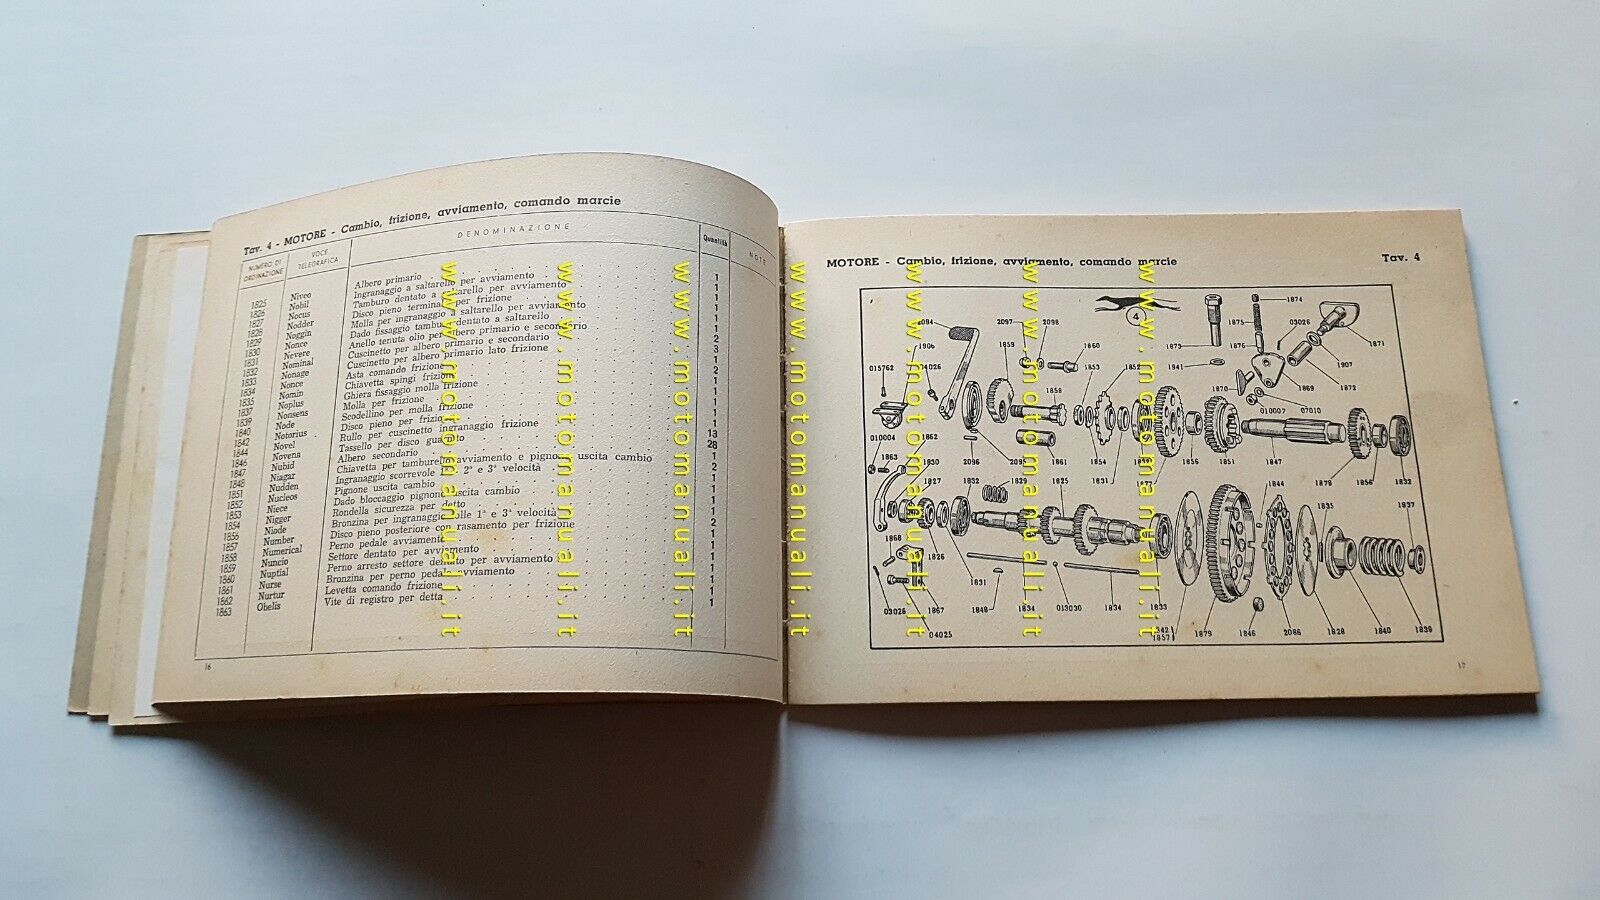 Tav. 4 - MOTORE - Cambio, frizione, avviamento, comando marcie
NUMERO DI ORDINAZIONE VOCE TELEGRAFICA DENOMINAZIONE Quantità NOTE
1825 Niveo Albero primario 1
1826 Nobil Ingranaggio a saltarello per avviamento 1
1827 Nocus Tamburo dentato a saltarello per avviamento 1
1828 Nodder Disco pieno terminale per frizione 1
1829 Noggin Molla per ingranaggio a saltarello per avviamento 1
1830 Nonce Dado fissaggio tamburo dentato a saltarello 1
1831 Nevere Anello tenuta olio per albero primario e secondario 2
1832 Nominal Cuscinetto per albero primario e secondario 3
1833 Nonage Cuscinetto per albero primario lato frizione 1
1834 Nonce Asta comando frizione 2
1835 Nomin Chiavetta spingi frizione 1
1837 Noplus Ghiera fissaggio molla frizione 1
1839 Nonsens Molla per frizione 1
1840 Node Scodellino per molla frizione 1
1842 Notorius Disco pieno per frizione 1
1844 Novel Rullo per cuscinetto ingranaggio frizione 13
1846 Novena Tassello per disco guarnito 28
1847 Nubid Albero secondario 1
1848 Niagar Chiavetta per tamburello avviamento e pignone uscita cambio 2
1851 Nudden Ingranaggio scorrevole 2ª e 3ª velocità 1
1852 Nucleos Pignone uscita cambio 1
1853 Niece Dado bloccaggio pignone uscita cambio 1
1854 Nigger Rondella sicurezza per detto 1
1856 Niode Bronzina per ingranaggio folle 1ª e 3ª velocità 2
1857 Number Disco pieno posteriore con rasamento per frizione 1
1858 Numerical Perno pedale avviamento 1
1859 Nuncio Settore dentato per avviamento 1
1860 Nuptial Perno arresto settore dentato per avviamento 1
1861 Nurse Bronzina per perno pedale avviamento 1
1862 Nurtur Levetta comando frizione 1
1863 Obelis Vite di registro per detta 1
16
MOTORE - Cambio, frizione, avviamento, comando marcie Tav. 4
4
2094 2097 2098 1874
1906 1859 1860 1875 1875 03026
015762 04026 1853 1852 1941 1876 1907 1871
1858 1870 1869 1872
010007 07010
010004 1862
1863 1830 2096 2095 1861 1854 1831 1877 1856 1851 1847 1878 1856 1832
1827 1832 1829 1825 1844 1835 1837
1868 1826 1831
03026 1867 1848 1834 013030 1834 1833
04025 1842 1857 1879 1846 2086 1828 1840 1839
17
www.motomanuali.it
www.motomanuali.it
www.motomanuali.it
www.motomanuali.it
www.motomanuali.it
www.motomanuali.it
www.motomanuali.it